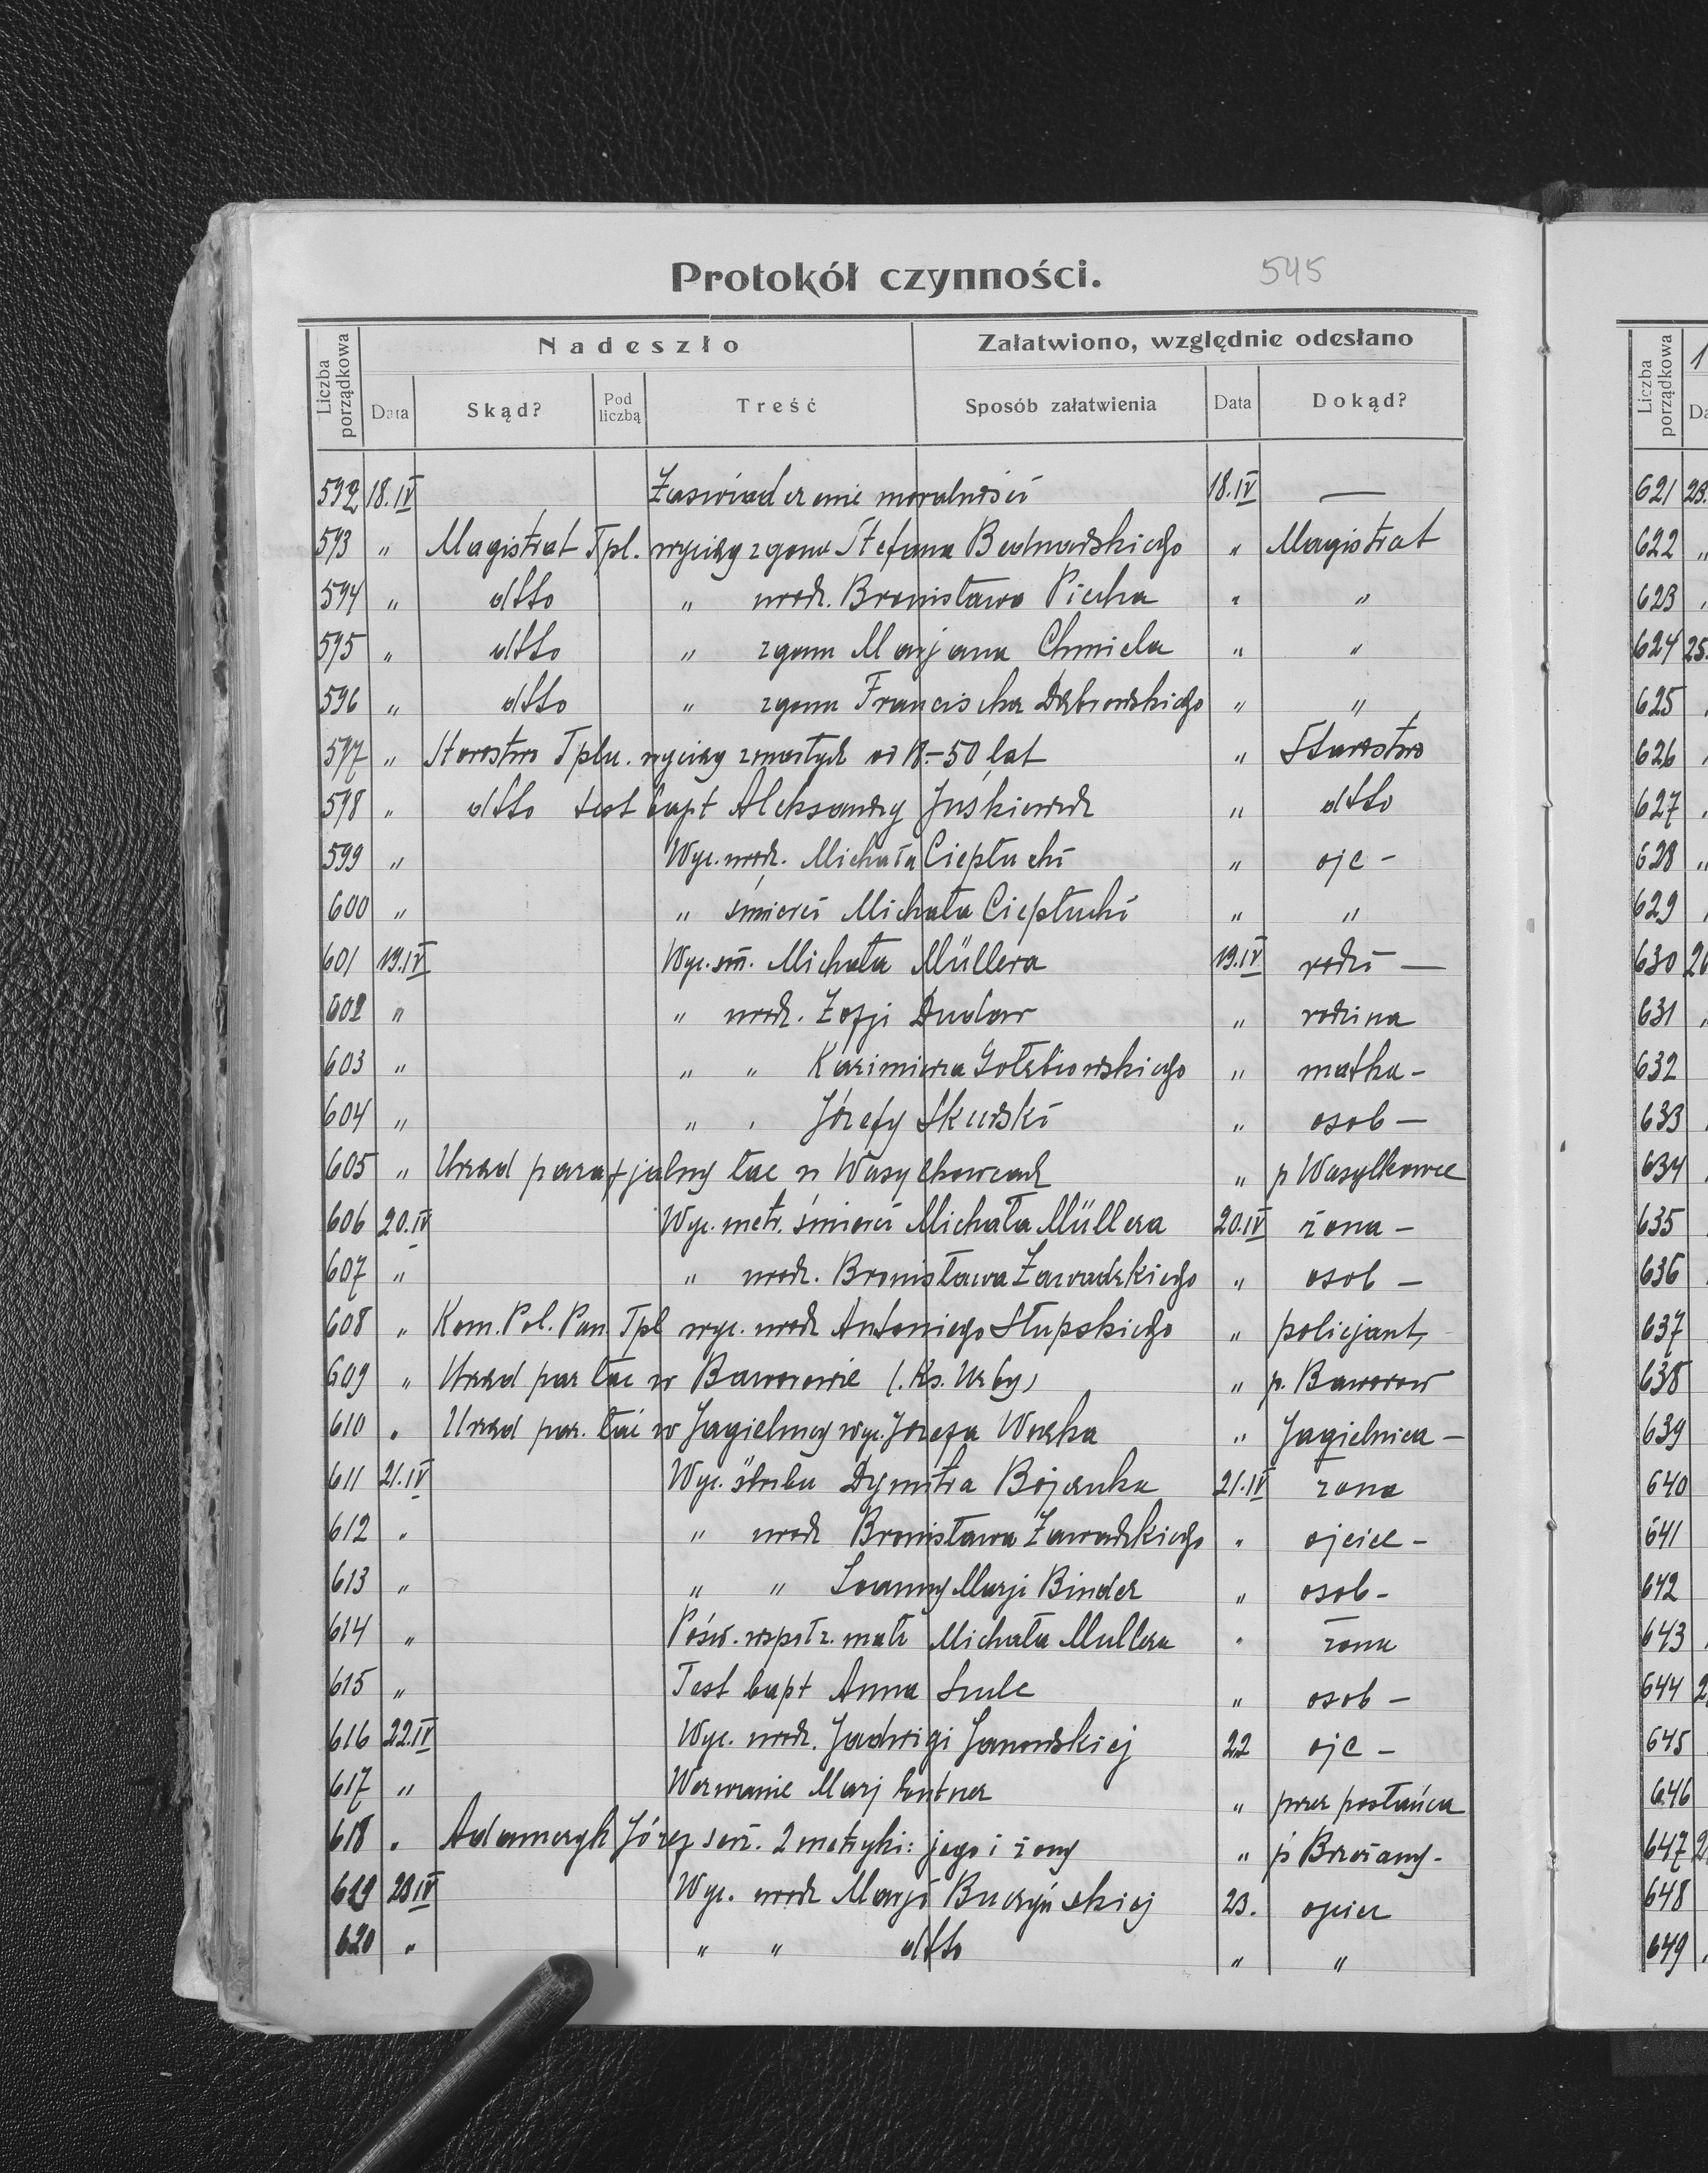 Protokół czynności. 545
Liczba porządkowa Nadeszło Załatwiono, względnie odesłano
Data Skąd? Pod liczbą Treść Sposób załatwienia Data Dokąd?
592 18.IV Zaświadczenie moralności 18.IV —
593 " Magistrat Tpl. wyciąg zgonu Stefana Bednarskiego " Magistrat
594 " dtto " urodz. Bronisława Piecha " "
595 " dtto " zgonu Marjana Chmiela " "
596 " dtto " zgonu Franciszka Dąbrowskiego " "
597 " Starostwo Tpln. wyciąg zmarłych od 18-50 lat " Starostwo
598 " dtto test bapt Aleksandry Juśkiewicz " dtto
599 " Wyc. urodz. Michała Ciepłuchi " ojc -
600 " " śmierci Michała Ciepłuchi " "
601 19.IV Wyc. śm. Michała Müllera 19.IV rodzi —
602 " " urodz. Zofji Dudar " rodzina
603 " " " Kazimierza Gołębiowskiego " matka -
604 " " " Józefy Skurski " osob —
605 " Urząd parafjalny łac w Wasylkowcach " p Wasylkowce
606 20.IV Wyc. metr. śmierci Michała Müllera 20.IV żona -
607 " " urodz. Bronisława Zawadzkiego " osob —
608 " Kom. Pol. Pan Tpl wyc. urodz Antoniego Słupskiego " policjant
609 " Urząd par łac w Baworowie (. Ks. Urby) " p. Baworow
610 " Urząd par. łać w Jagielnicy wyc. Józefa Wnęka " Jagielnica —
611 21.IV Wyc. ślubu Dymitra Bojanka 21.IV żona
612 " " urodz Bronisława Zawadzkiego " ojciec -
613 " " " Joanny Marji Binder " osob -
614 " Pośw. współż. małż Michała Mullera " żona
615 " Test bapt Anna Szulc " osob -
616 22.IV Wyc. urodz. Jadwigi Janowskiej 22 ojc -
617 " Wezwanie Marj " przez posłańca
618 " Adamczyk Józef serż. 2 metryki: jego i żony " p Brzeżany -
619 23 IV Wyc. urodz Marji Buczyńskiej 23. ojciec
620 " " " dtto " "
Liczba porządkowa 1
621 23.
622 "
623
624 25.
625
626
627
628 "
629
630 26
631
632
633
634
635
636
637
638
639
640
641
642
643
644 2
645
646
647 2
648
649